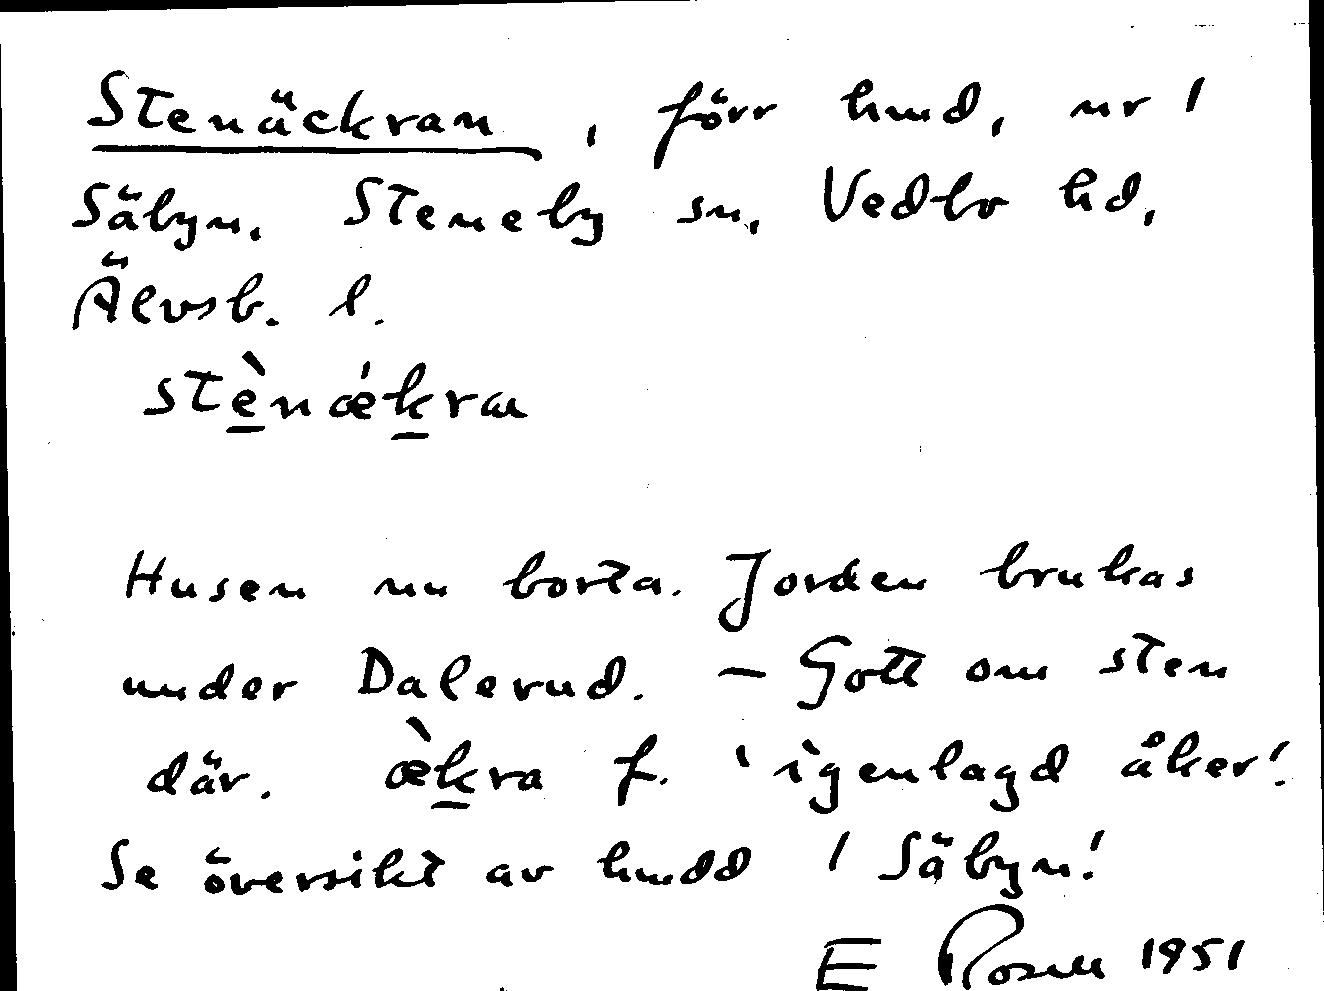 Stenäckran, förr hmd, nr 1
Säbyn. Steneby sn. Vedbo hd,
Älvsb. l.
stènǽkran
Husen nu borta. Jorden brukas
under Dalerud. – Gott om sten
där. æ̀kra f. 'igenlagd åker'.
Se översikt av hmdd 1 Säbyn!
E Rosell 1951